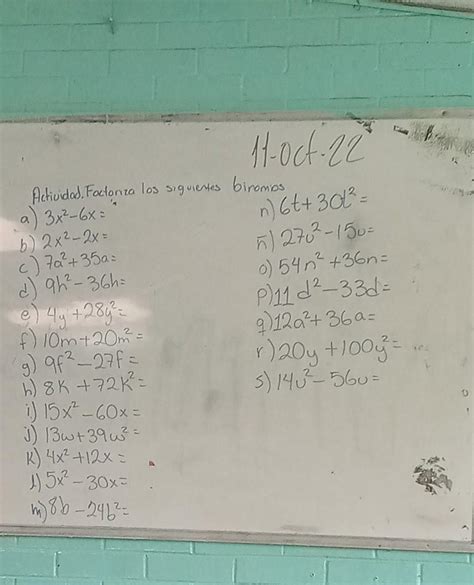 11-Oct-22
Actividad. Factoriza los siguientes binomos
a) 3x²-6x=
b) 2x²-2x=
c) 7a²+35a=
d) 9h²-36h=
e) 4y+28y²=
f) 10m+20m²=
g) 9f²-27f=
h) 8K+72K²=
i) 15x²-60x=
j) 13w+39w²=
K) 4x²+12x=
l) 5x²-30x=
m) 8b-24b²=
n) 6t+30t²=
ñ) 27u²-15u=
o) 54n²+36n=
p) 11d²-33d=
q) 12a²+36a=
r) 20y+100y²=
s) 14u²-56u=